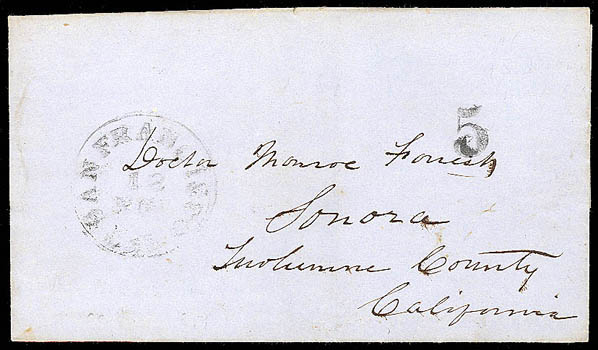 5
SAN FRANCISCO
12
Doctor Monroe Forrest
Sonora
Tuolumne County
California